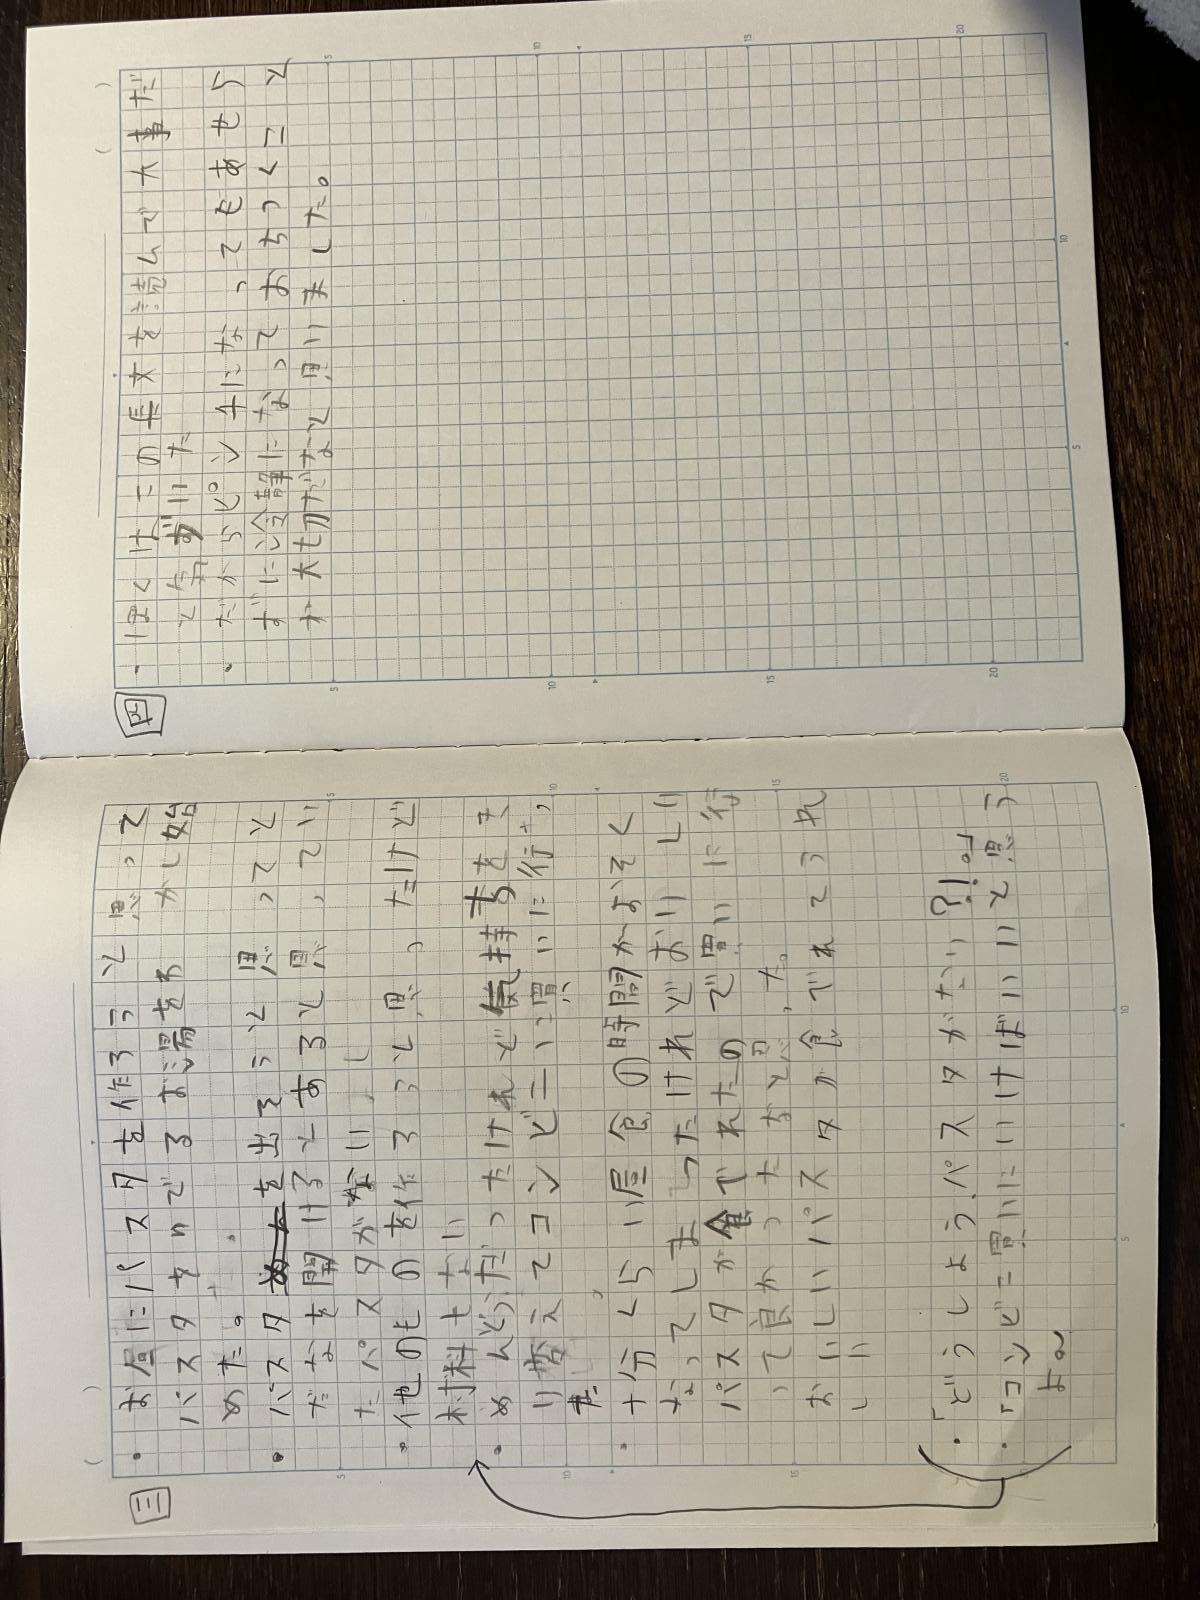 三
・お昼にパスタを作ろうと思って
パスタをゆでるお湯をわかし始
めた。
・パスタを出ろうと思ってと
だなを開けるとあると思っていい
たパスタがない。
・他のものを作ろうと思ったけど
材料もない
・めんどうだったけれど気持ちをき
り替えてコンビニに買いに行っ
た。
・十分くらい昼食の時間がおそく
なってしまったけれどおいしい
パスタが食べれたので買いに行
って良かったなと思った。
おいしいパスタが食べれてうれ
しい
・「どうしようパスタがない?!。」
・「コンビニ買いにいけばいいと思う
よ～
四
・ぼくはこの長文を読んで大事だ
と気づいた
・だからピンチになってもあせら
ずに冷静になっておちつくこと
が大切だなと思いました。
5
10
15
20